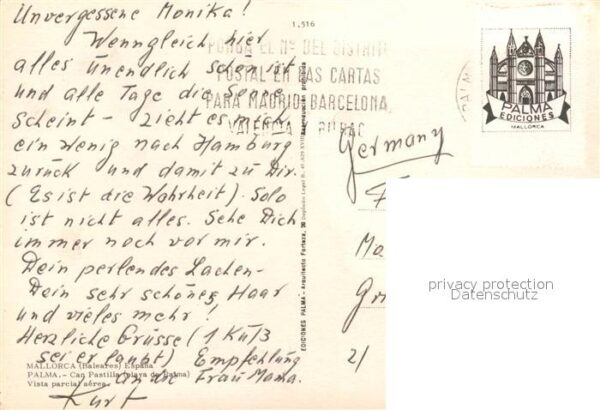 Unvergessene Monika!
Wenngleich hier
alles unendlich schön ist
und alle Tage die Sonne
scheint - zieht es mich
ein wenig nach Hamburg
zurück und damit zu Dir.
(Es ist die Wahrheit). Solo
ist nicht alles. Sehe Dich
immer noch vor mir.
Dein perlendes Lachen -
Dein sehr schönes Haar
und vieles mehr!
Herzliche Grüsse (1 Kuß
sei erlaubt) Empfehlung
an die Frau Mama.
Kurt
MALLORCA (Baleares) España
PALMA.- Can Pastilla (playa de Palma)
Vista parcial aérea.
1.516
PONGA EL Nº DEL DISTRITO
POSTAL EN LAS CARTAS
PARA MADRID, BARCELONA,
VALENCIA BILBAO
EDICIONES PALMA - Arquitecto Forteza,
PALMA
EDICIONES
MALLORCA
Germany
Ma
2/
privacy protection
Datenschutz